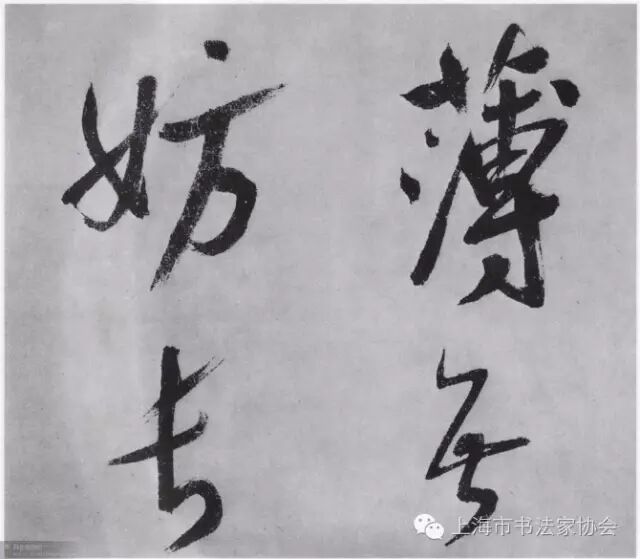 薄无
妨长
上海市书法家协会